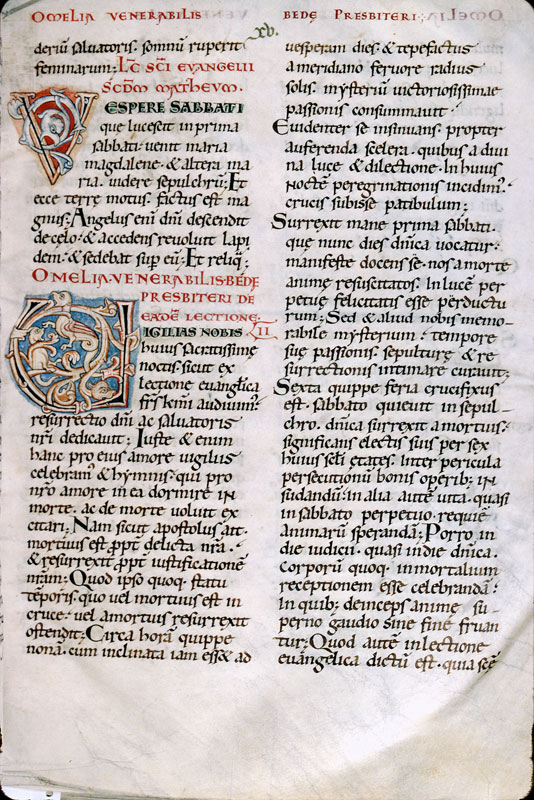 OMELIA VENERABILIS
BEDE PRESBITERI;
xv.
deriū saluatoris. somnū ruperit
feminarum; LC SCI EVANGELII
SCDM MATHEVM.
VESPERE SABBATI
que lucescit in prima
sabbati. uenit maria
magdalene. & altera ma
ria. uidere sepulchrū; Et
ecce terrę motus. factus est ma
gnus; Angelus eni dnī descendit
de cęlo. & accedens reuoluit lapi
dem. & sedebat sup eū; Et reliq;
OMELIA VENERABILIS BEDE
PRESBITERI DE
EADĒ LECTIONE. LII
VIGILIAS NOBIS
huius sacratissimę
noctis. sicut ex
lectione euanglica
frs kmi audiuim;
resurrectio dnī ac saluatoris
nrī dedicauit; Iuste & enim
hanc pro eius amore uigiliis
celebram' & hymnis. qui pro
nrō amore in ea dormire in
morte. ac de morte uoluit ex
citari; Nam sicut apostolus ait.
mortuus est ppt delicta nrā.
& resurrexit ppt iustificationē
nrām; Quod ipso quoq. statu
teporis. quo uel mortuus est in
cruce. uel a mortuis resurrexit
ostendit; Circa horā quippe
nona. cum inclinata iam ess& ad
uesperam dies. & tepefactus
a meridiano feruore radius
solis. mysteriū uictoriosissimae
passionis consummauit.
Euidenter se insinuans. propter
auferenda scelera. quibus a diui
na luce & dilectione. in huius
noctē peregrinationis incidim;
crucis subisse patibulum;
Surrexit mane prima sabbati.
que nunc dies dnīca uocatur.
manifeste docens se. nos a morte
animę resuscitatos. in lucē per
petuę felicitatis esse perductu
rum; Sed & aliud nobis memo
rabile mysterium. tempore
suę passionis. sepulturę & re
surrectionis intimare curauit;
Sexta quippe feria crucifixus
est. sabbato quieuit in sepul
chro. dnīca surrexit a mortuis.
significans electis suis per sex
huius sclī ętates. inter pericula
persecutionū bonis operib; in
sudandū. in alia autē uita. quasi
in sabbato perpetuo. requiē
animarū sperandā; Porro in
die iudicii. quasi in die dnīca.
corporū quoq. inmortalium
receptionem esse celebrandā.
in quib; deinceps anime su
perno gaudio sine fine fruan
tur; Quod autē in lectione
euangelica dictū est. quia scē